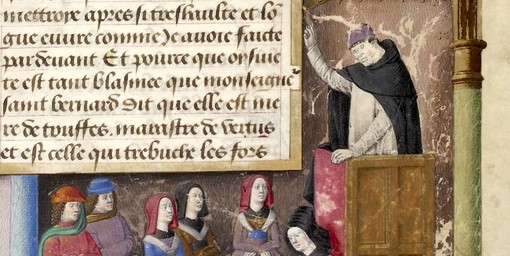 mettroye apres si treshaulte et lo
gue euure comme Je auoie faicte
par deuant Et pource que oysiue
te est tant blasmee que monseignr
saint bernard Dit que elle est me
re de trouffes. marastre de vertus
et est celle qui trebuche les fors